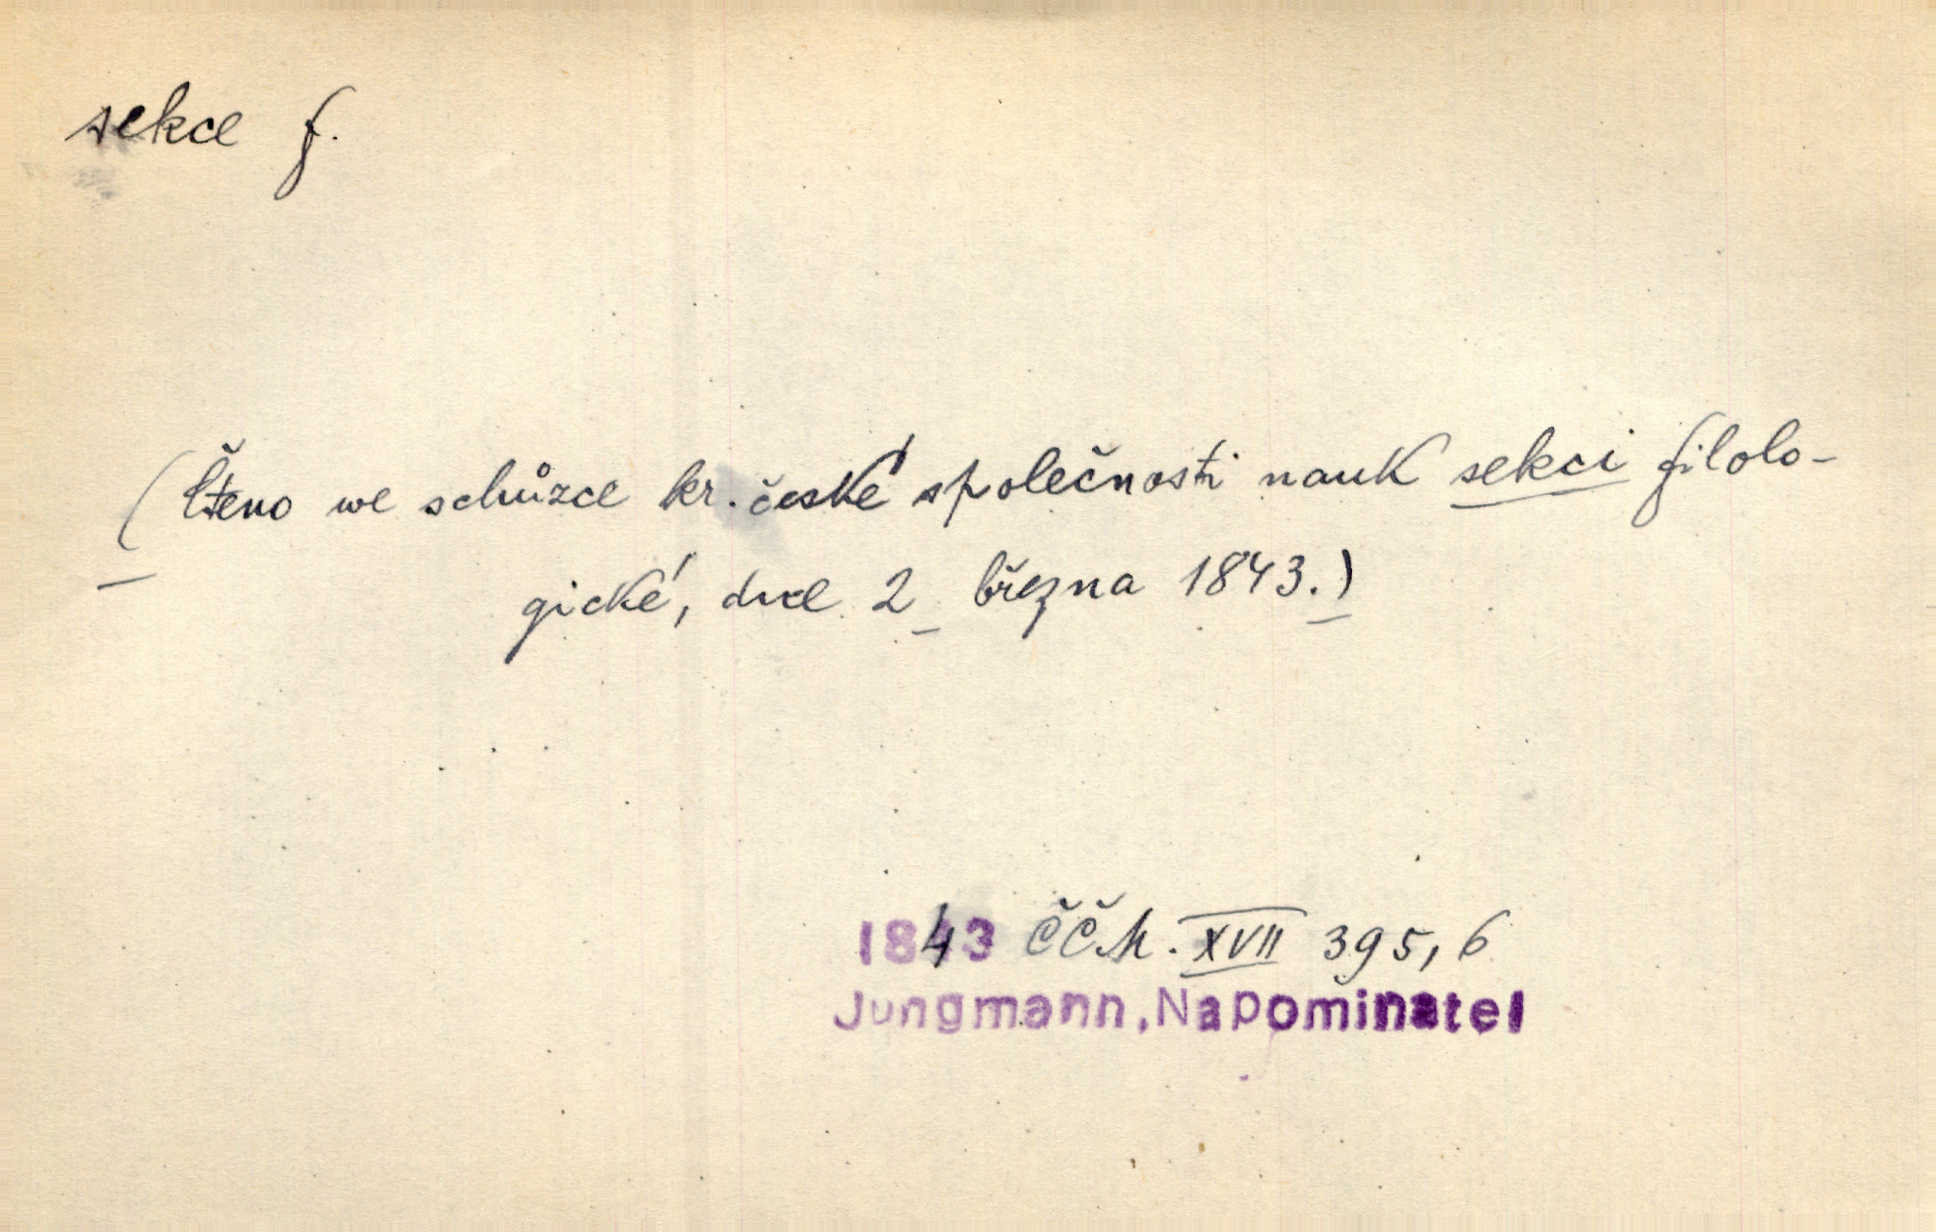 sekce f.
(Čteno we schůzce kr. české společnosti nauk sekci filolo-
gické, dne 2 března 1843.)
1843 ČČM. XVII 395, 6
Jungmann, Napominatel